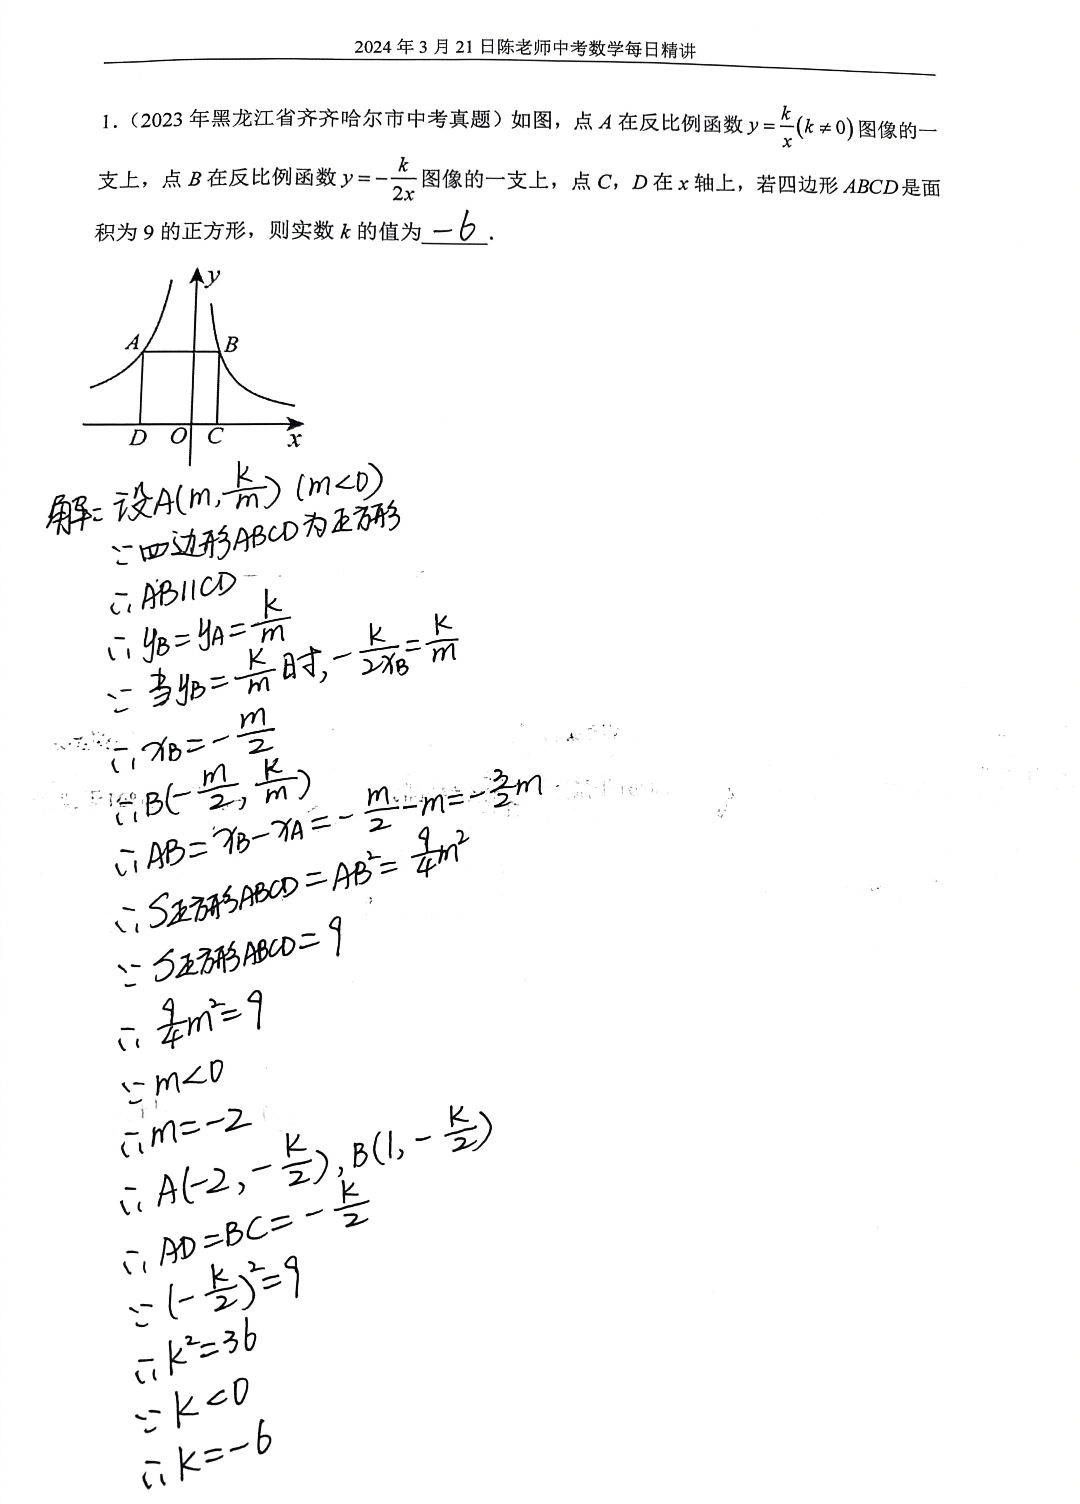 2024 年 3 月 21 日陈老师中考数学每日精讲
1.（2023 年黑龙江省齐齐哈尔市中考真题）如图，点 A 在反比例函数 y = k/x (k ≠ 0) 图像的一
支上，点 B 在反比例函数 y = -k/2x 图像的一支上，点 C，D 在 x 轴上，若四边形 ABCD 是面
积为 9 的正方形，则实数 k 的值为 -6 .
y
A B
D O C x
解：设A(m, k/m) (m<0)
∵四边形ABCD为正方形
∴AB∥CD
∴yB=yA=k/m
∵当yB=k/m时, -k/2xB=k/m
∴xB=-m/2
∴B(-m/2, k/m)
∴AB=xB-xA=-m/2-m=-3/2m
∴S正方形ABCD=AB²=9/4m²
∵S正方形ABCD=9
∴9/4m²=9
∵m<0
∴m=-2
∴A(-2, -k/2), B(1, -k/2)
∴AD=BC=-k/2
∵(-k/2)²=9
∴k²=36
∵k<0
∴k=-6